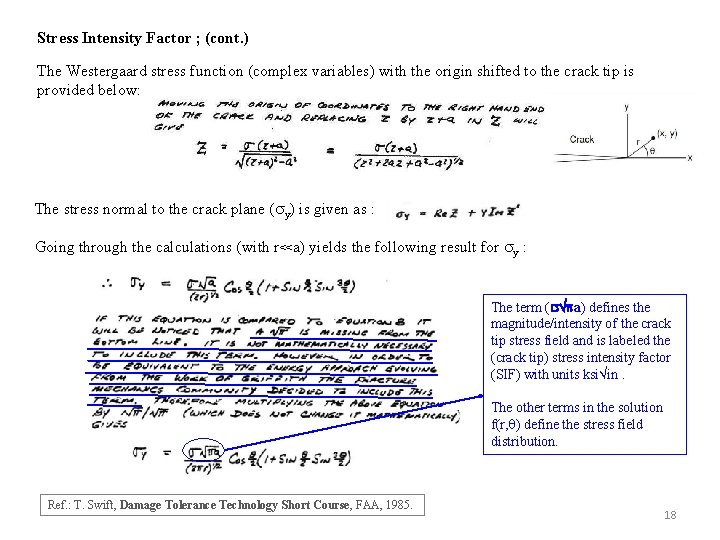 Stress Intensity Factor ; (cont.)
The Westergaard stress function (complex variables) with the origin shifted to the crack tip is
provided below:
MOVING THE ORIGIN OF COORDINATES TO THE RIGHT HAND END
OF THE CRACK AND REPLACING Z BY Z+a IN Z WILL
GIVE
Z = σ(z+a) / √((z+a)²-a²) = σ(z+a) / (z²+2az+a²-a²)^1/2
y
Crack
(x, y)
r
θ
x
The stress normal to the crack plane (σy) is given as :
σy = Re Z + Y Im Z'
Going through the calculations (with r<<a) yields the following result for σy :
∴ σy = σ√a / (2r)^1/2 Cos θ/2 (1+Sin θ/2 Sin 3θ/2)
IF THIS EQUATION IS COMPARED TO EQUATION 8 IT
WILL BE NOTICED THAT A √π IS MISSING FROM THE
BOTTOM LINE. IT IS NOT MATHEMATICALLY NECESSARY
TO INCLUDE THIS TERM. HOWEVER IN ORDER TO
BE EQUIVALENT TO THE ENERGY APPROACH EVOLVING
FROM THE WORK OF GRIFFITH THE FRACTURE
MECHANICS COMMUNITY DECIDED TO INCLUDE THIS
TERM. THEREFORE MULTIPLYING THE ABOVE EQUATION
BY √π/√π (WHICH DOES NOT CHANGE IT MATHEMATICALLY)
GIVES
σy = σ√πa / (2πr)^1/2 Cos θ/2 (1+Sin θ/2 Sin 3θ/2)
The term (σ√πa) defines the
magnitude/intensity of the crack
tip stress field and is labeled the
(crack tip) stress intensity factor
(SIF) with units ksi√in .
The other terms in the solution
f(r,θ) define the stress field
distribution.
Ref.: T. Swift, Damage Tolerance Technology Short Course, FAA, 1985.
18